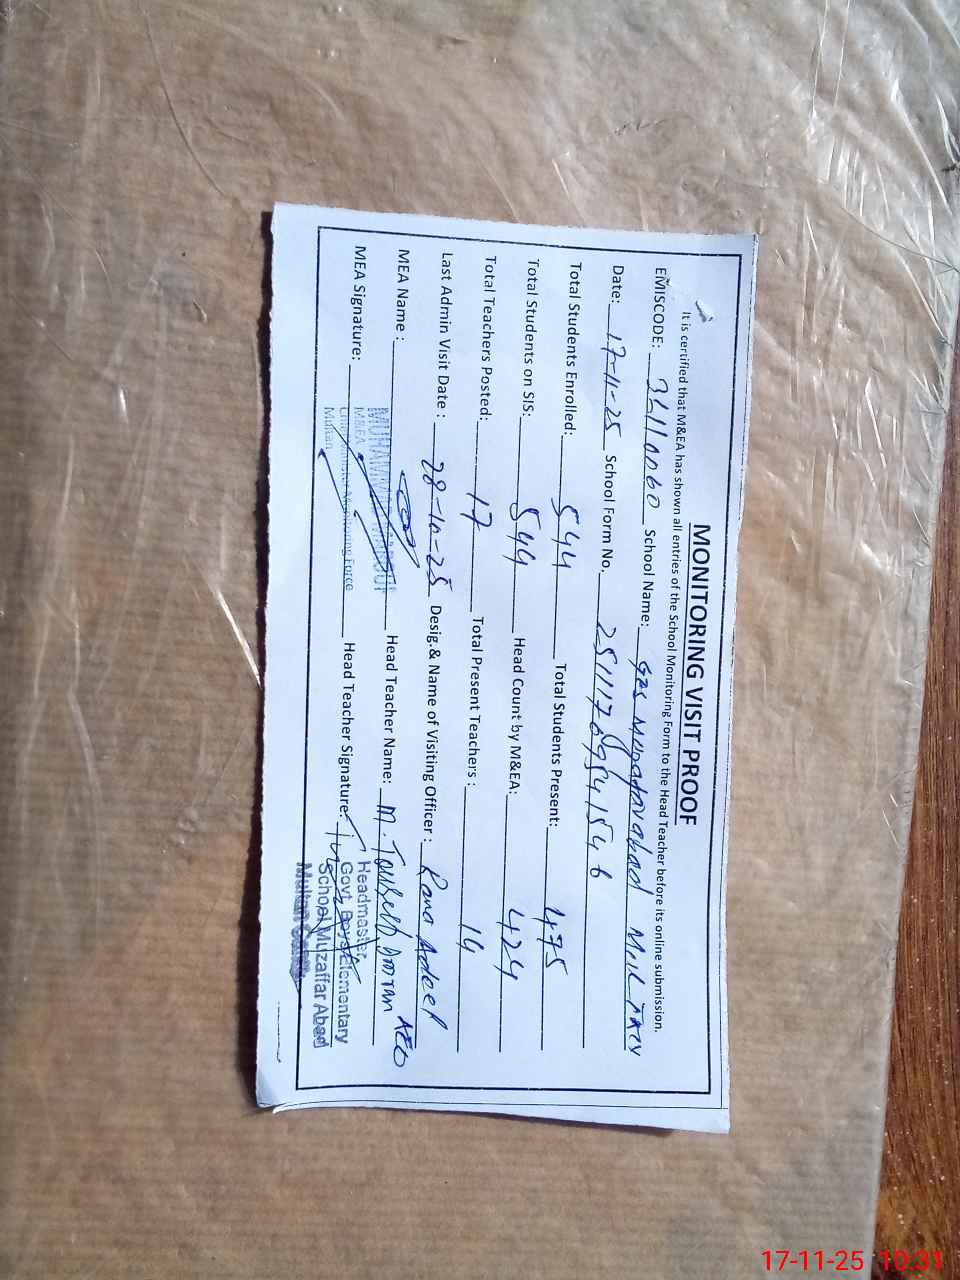 MONITORING VISIT PROOF
It is certified that M&EA has shown all entries of the School Monitoring Form to the Head Teacher before its online submission.
EMISCODE: School Name: Muzafarabad
Date: 17-11-25 School Form No.
Total Students Enrolled: 544 Total Students Present: 475
Total Students on SIS: 544 Head Count by M&EA: 424
Total Teachers Posted: 17 Total Present Teachers : 14
Last Admin Visit Date : 28-10-25 Desig.& Name of Visiting Officer : Rana Adeel AEO
MEA Name : Head Teacher Name: M.
MEA Signature: Head Teacher Signature:
M&EA
Monitoring Force
Multan
Headmaster
Govt. Boys Elementary
School Muzaffar Abad
Multan
17-11-25 10:31